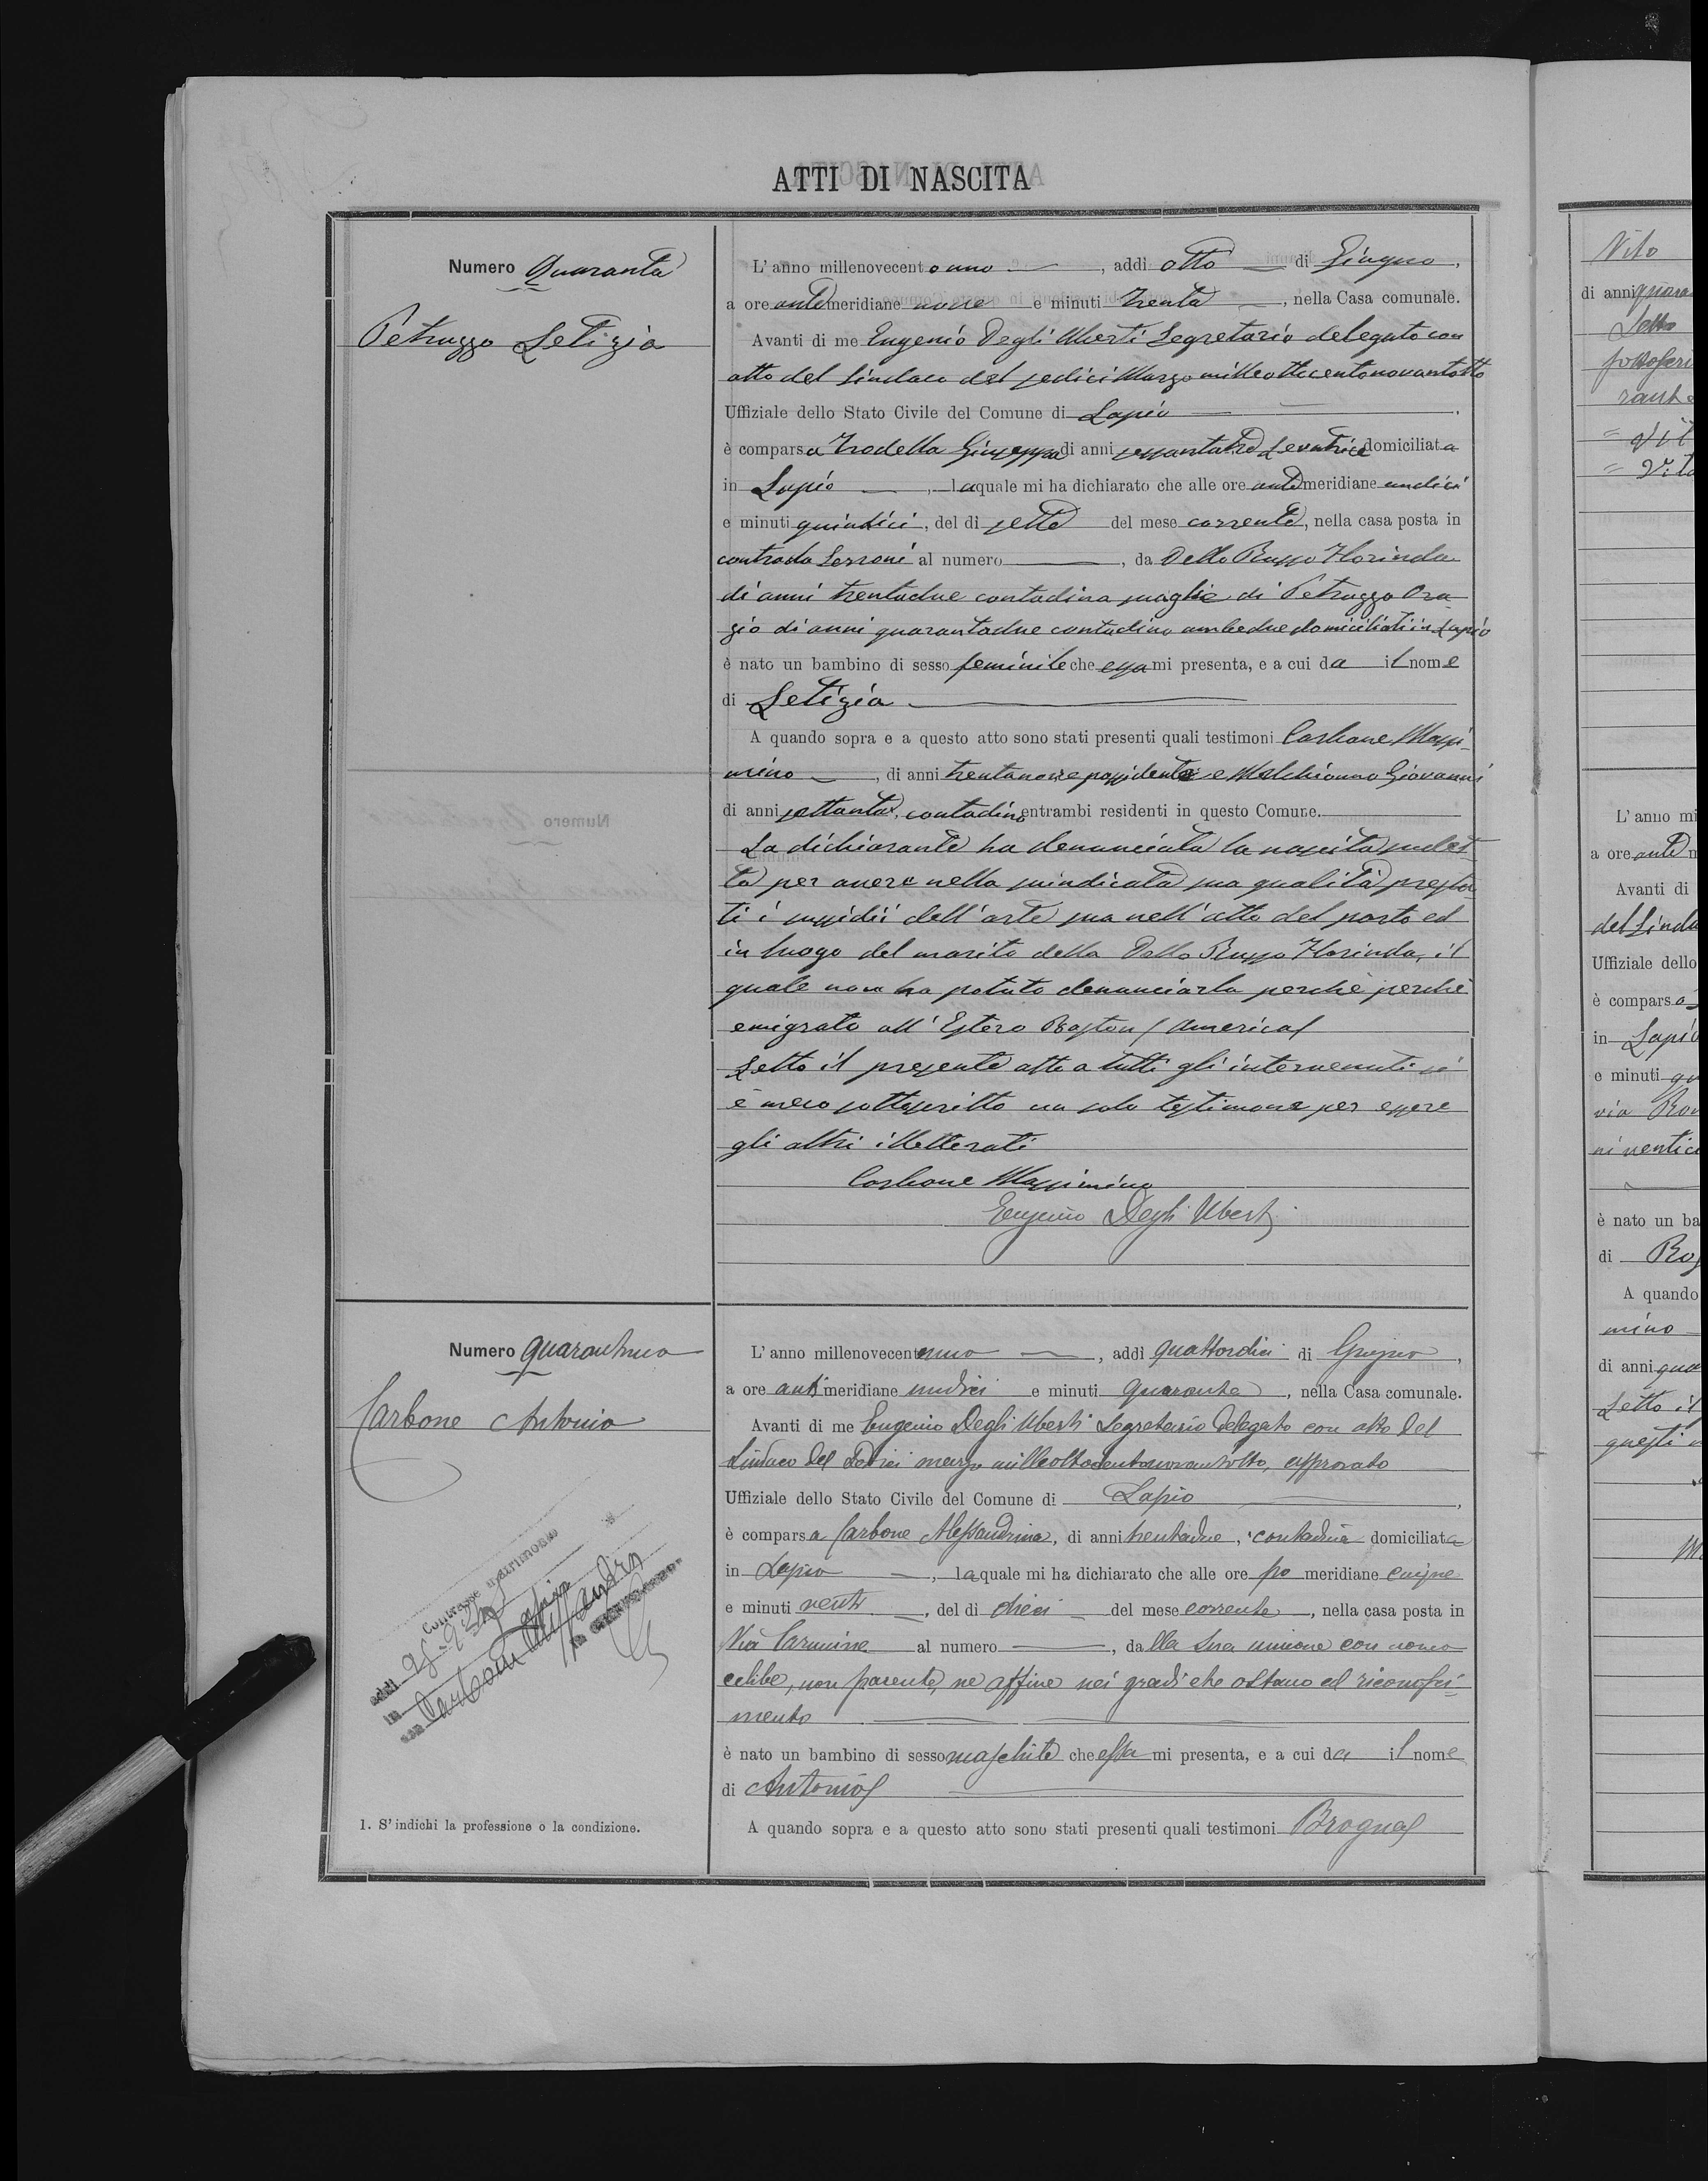 ATTI DI NASCITA
Numero Quaranta
Petruzzo Letizia
L'anno millenovecentouno, addì otto di Giugno,
a ore antimeridiane nove e minuti trenta, nella Casa comunale.
Avanti di me Eugenio Degli Uberti Segretario delegato con
atto del Sindaco del sedici Marzo milleottocentonovantotto
Uffiziale dello Stato Civile del Comune di Lapio
è comparsa Trodella Giuseppa di anni sessantatre Levatrice domiciliata
in Lapio, laquale mi ha dichiarato che alle ore antimeridiane undici
e minuti quindici, del dì sette del mese corrente, nella casa posta in
contrada Serroni al numero, da Dello Russo Florinda
di anni trentadue contadina moglie di Petruzzo Ora
zio di anni quarantadue contadino ambedue domiciliati in Lapio
è nato un bambino di sesso feminile che essa mi presenta, e a cui da il nome
di Letizia
A quando sopra e a questo atto sono stati presenti quali testimoni Carbone Massi
mino, di anni trentanove possidente e Melchionno Giovanni
di anni settanta, contadino entrambi residenti in questo Comune.
La dichiarante ha denunciata la nascita sudet
ta per avere nella suindicata sua qualità presta
ti i sussidii dell'arte sua nell'atto del parto ed
in luogo del marito della Dello Russo Florinda, il
quale non ha potuto denunciarla perchè perchè
emigrato all'Estero Boston (America)
Letto il presente atto a tutti gli intervenuti si
è meco sottoscritto un solo testimone per essere
gli altri illetterati
Carbone Massimino
Eugenio Degli Uberti
Numero quarantuno
Carbone Antonio
Contrasse matrimonio
addì
in Lapio
con Carbone
L'anno millenovecentouno, addì quattordici di Giugno,
a ore antimeridiane undici e minuti quaranta, nella Casa comunale.
Avanti di me Eugenio Degli Uberti Segretario delegato con atto del
Sindaco del sedici marzo milleottocentonovantotto, approvato
Uffiziale dello Stato Civile del Comune di Lapio,
è comparsa Carbone Alessandrina, di anni trentadue, contadina domiciliata
in Lapio, laquale mi ha dichiarato che alle ore pomeridiane cinque
e minuti venti, del dì dieci del mese corrente, nella casa posta in
Via Carmine al numero, dalla sua unione con uomo
celibe, non parente, nè affine nei gradi che ostano al riconosci
mento
è nato un bambino di sesso maschile che essa mi presenta, e a cui da il nome
di Antonio
A quando sopra e a questo atto sono stati presenti quali testimoni Brogna
1. S'indichi la professione o la condizione.
Vito
di anni quara
Letto
sottoscri
L'anno mi
a ore anti m
Avanti di
del Sinda
Uffiziale dello
è comparsa
in Lapio
e minuti qu
via
ni ventici
è nato un ba
di
A quando
mino
di anni qua
Letto il
questi